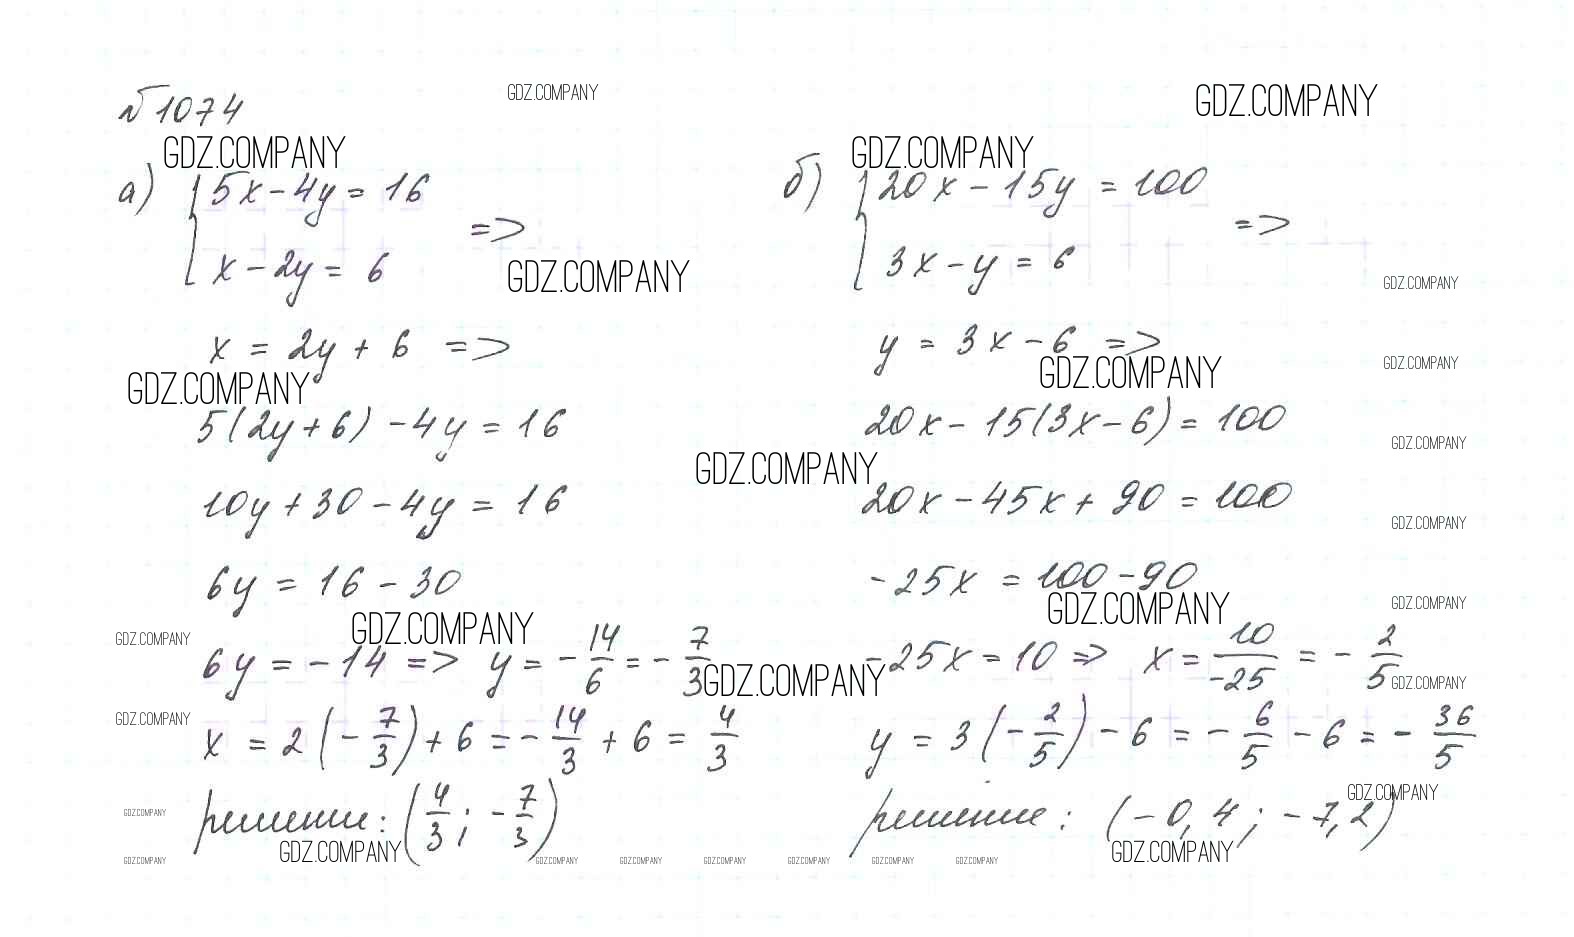 №1074
GDZ.COMPANY
GDZ.COMPANY
GDZ.COMPANY
GDZ.COMPANY
а) { 5x - 4y = 16
x - 2y = 6 =>
GDZ.COMPANY
x = 2y + 6 =>
GDZ.COMPANY
5(2y + 6) - 4y = 16
GDZ.COMPANY
10y + 30 - 4y = 16
6y = 16 - 30
GDZ.COMPANY
GDZ.COMPANY
6y = -14 => y = -14/6 = -7/3
GDZ.COMPANY
GDZ.COMPANY
x = 2(-7/3) + 6 = -14/3 + 6 = 4/3
GDZ.COMPANY
решение: (4/3; -7/3)
GDZ.COMPANY
GDZ.COMPANY
б) { 20x - 15y = 100
3x - y = 6 =>
GDZ.COMPANY
y = 3x - 6 =>
GDZ.COMPANY
GDZ.COMPANY
20x - 15(3x - 6) = 100
GDZ.COMPANY
20x - 45x + 90 = 100
GDZ.COMPANY
-25x = 100 - 90
GDZ.COMPANY
GDZ.COMPANY
-25x = 10 => x = 10/-25 = -2/5
GDZ.COMPANY
y = 3(-2/5) - 6 = -6/5 - 6 = -36/5
GDZ.COMPANY
решение: (-0,4; -7,2)
GDZ.COMPANY
GDZ.COMPANY
GDZ.COMPANY
GDZ.COMPANY
GDZ.COMPANY
GDZ.COMPANY
GDZ.COMPANY